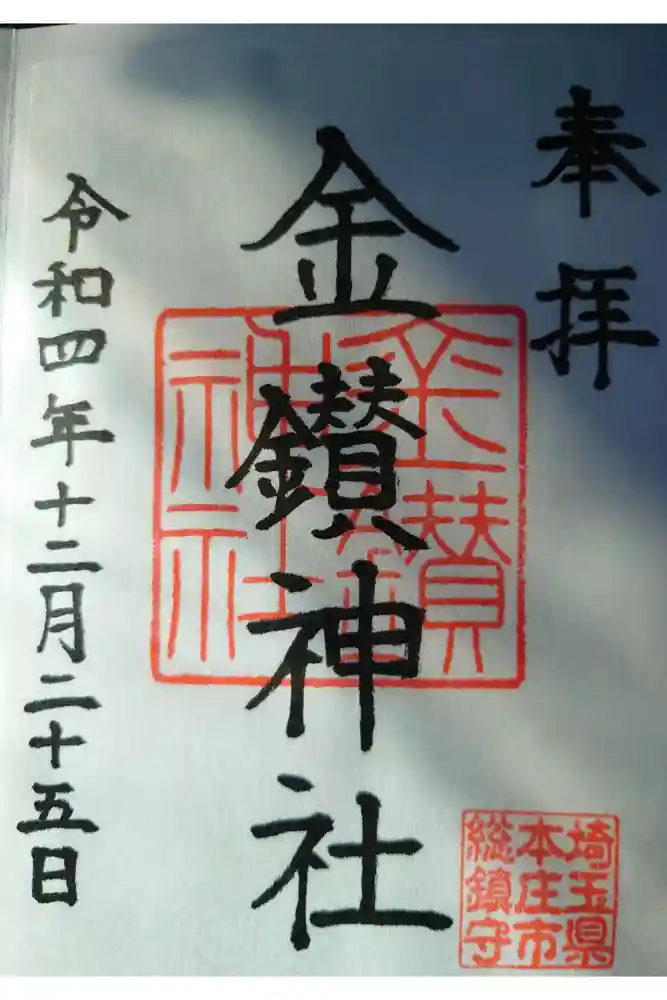 奉拝
金鑚神社
金鑚神社
埼玉県
本庄市
総鎮守
令和四年十二月二十五日